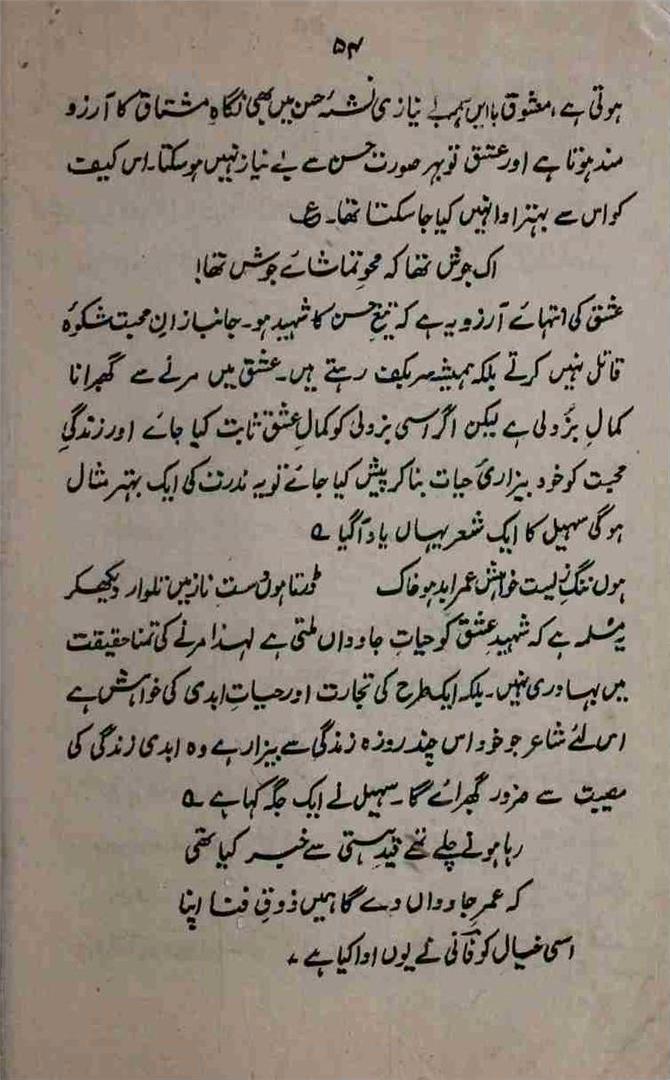 ۵۴
ہوتی ہے، معشوق باایں ہمہ بے نیازی نشۂ حسن میں بھی نگاہِ مشتاق کا آرزو
مند ہوتا ہے اور عشق تو بہر صورت حسن سے بے نیاز نہیں ہو سکتا۔ اس کیفیت
کو اس سے بہتر ادا نہیں کیا جا سکتا تھا۔ ع
اک جوش تھا کہ محوِ تماشائے جوش تھا!
عشق کی انتہائے آرزو یہ ہے کہ تیغِ حسن کا شہید ہو۔ جانبازانِ محبت شکوۂ
قاتل نہیں کرتے بلکہ ہمیشہ سر بکف رہتے ہیں۔ عشق میں مرنے سے گھبرانا
کمالِ بزدلی ہے لیکن اگر اسی بزدلی کو کمالِ عشق ثابت کیا جائے اور زندگیِ
محبت کو خود بیزاریٔ حیات بنا کر پیش کیا جائے تو یہ ندرت کی ایک بہتر مثال
ہوگی سہیل کا ایک شعر یہاں یاد آگیا ؎
ہوں ننگِ زیست خواہشِ عمرِ ابد ہو خاک ڈرتا ہوں دستِ ناز میں تلوار دیکھکر
یہ مسلمہ ہے کہ شہیدِ عشق کو حیاتِ جاوداں ملتی ہے لہذا مرنے کی تمنا حقیقت
میں بہادری نہیں۔ بلکہ ایک طرح کی تجارت اور حیاتِ ابدی کی خواہش ہے
اس لئے شاعر جو خود اس چند روزہ زندگی سے بیزار ہے وہ ابدی زندگی کی
مصیبت سے ضرور گھبرائے گا۔ سہیل نے ایک جگہ کہا ہے ؎
رہا ہونے چلے تھے قیدِ ہستی سے خبر کیا تھی
کہ عمرِ جاوداں دے گا ہمیں ذوقِ فنا اپنا
اسی خیال کو فانی نے یوں ادا کیا ہے۔